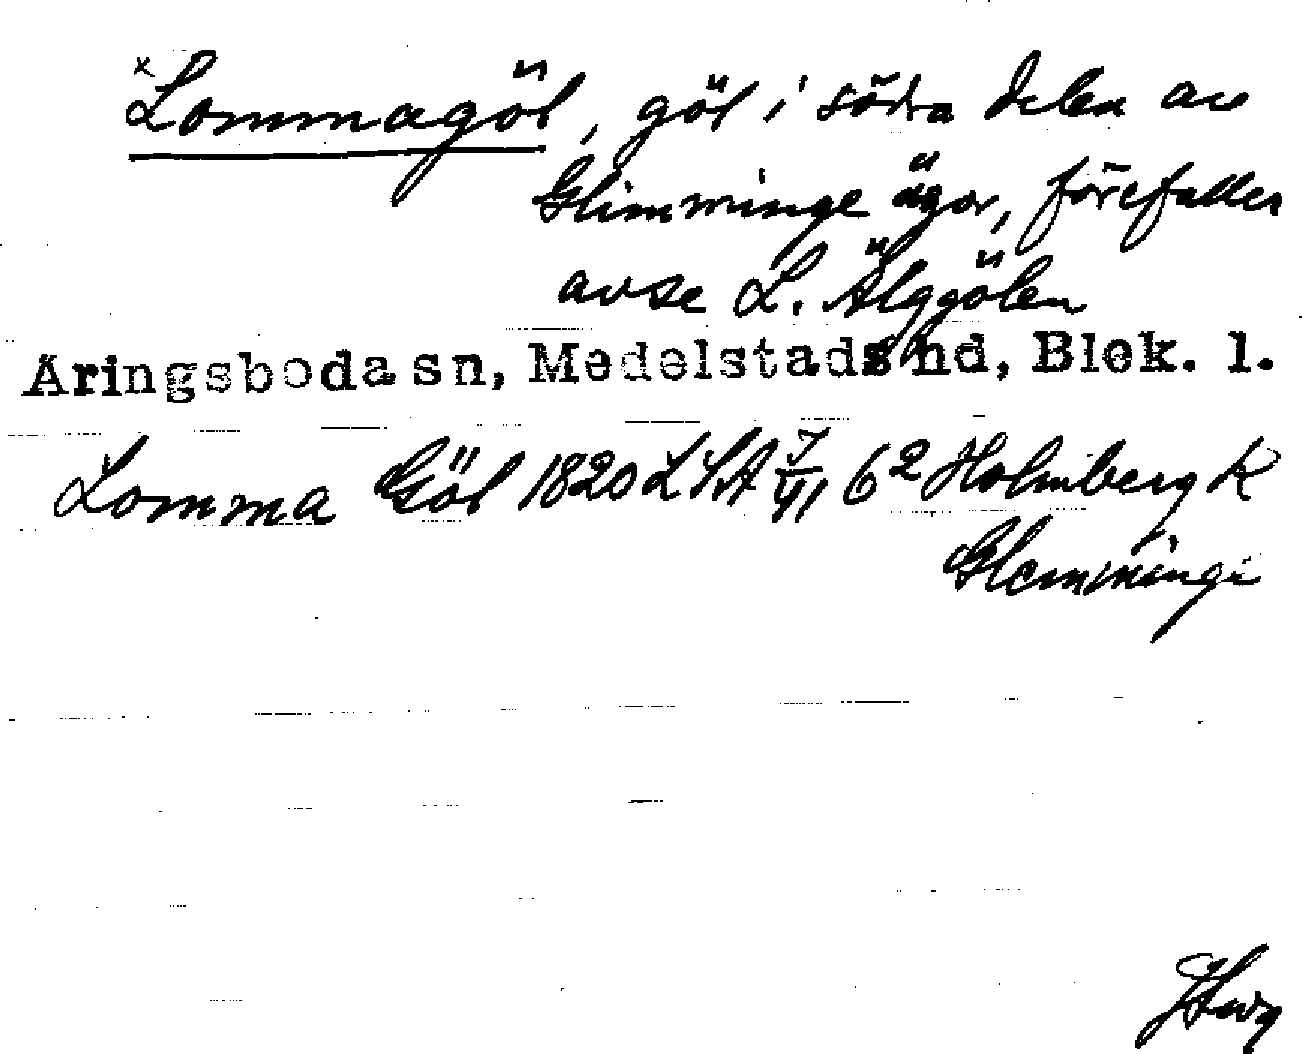 x Lommagöl, göl i södra delen av
Glimminge ägor, förefaller
avse L. Älggölen
Åringsboda sn, Medelstads hd, Blek. l.
Lomma Göl 1820 LSA J/VI 6² Holmberg K
Glemminge